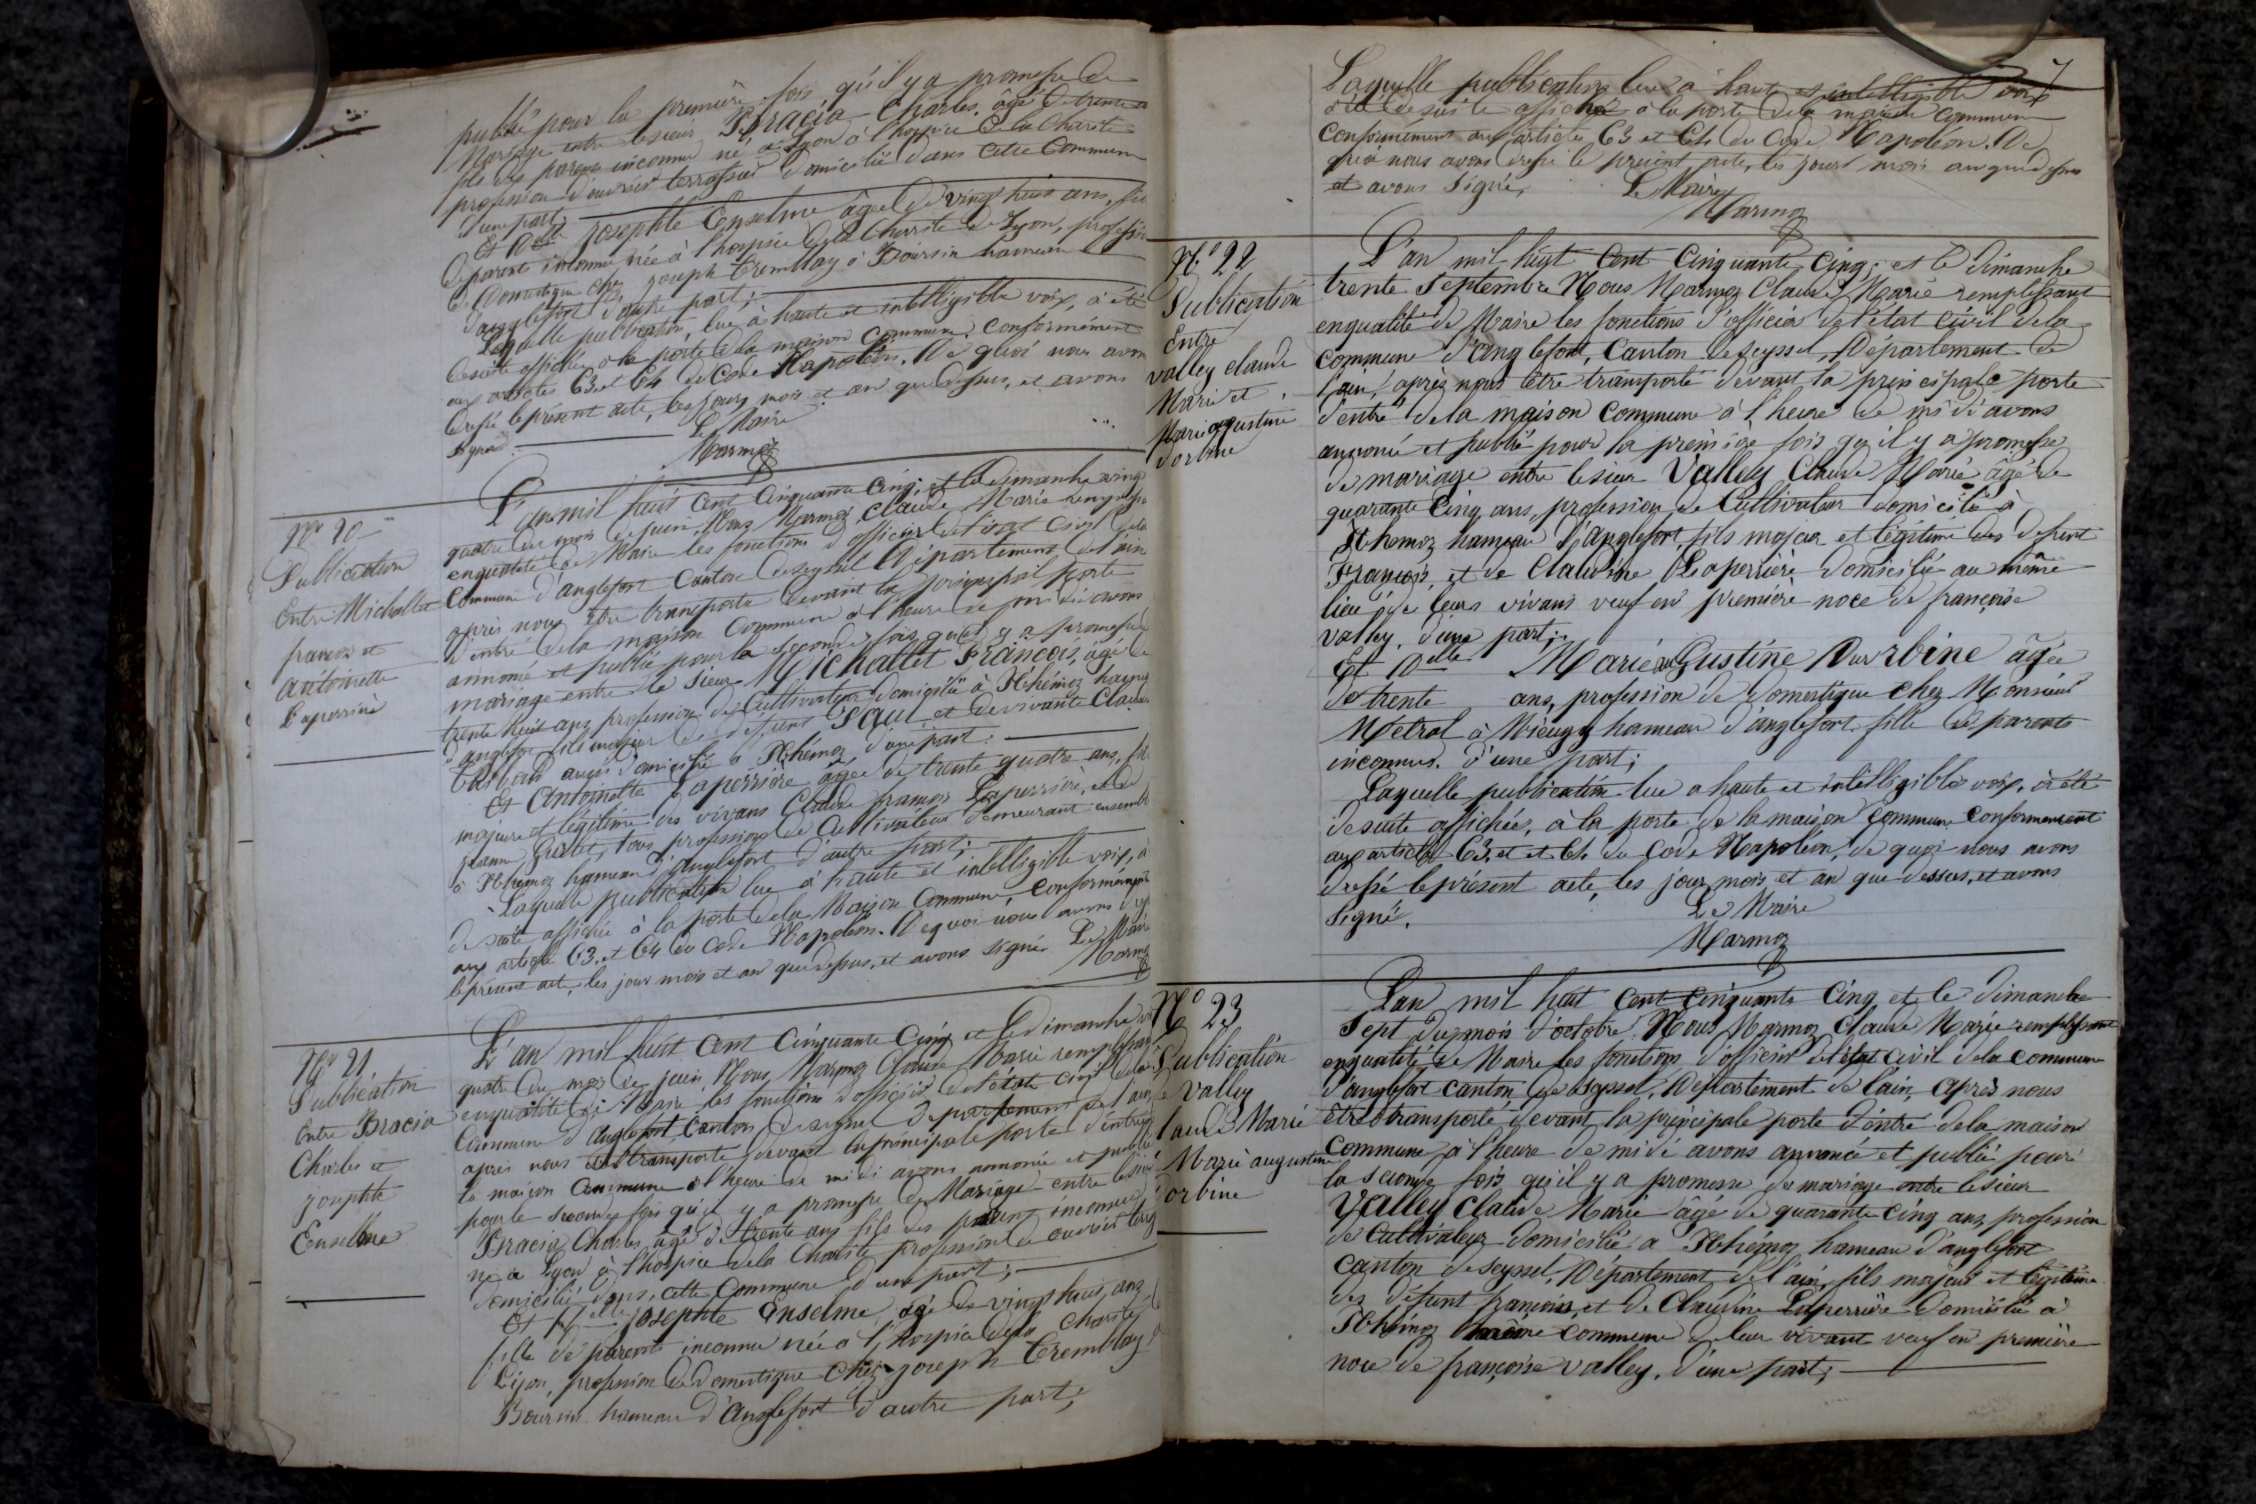 publié pour la première fois qu'il y a promesse de
Mariage entre le sieur Bracia Charles, âgé de trente
fils des parens inconnu né à Lyon à l'hospice de la Charité
profession d'ouvrier terrassier domicilié dans cette Commune
d'une part;
Et Delle Josephte Enselme âgée de vingt huit ans, fil
de parents inconnu née à l'hospice de la Charité de Lyon, profession
de Domestique chez Joseph Tremblay à Boursin hameau
d'anglefort d'autre part;
Laquelle publication, lue à haute et intelligible voix, a été
de suite affichée à la porte de la maison commune, conformément
aux articles 63 et 64 du Code Napoléon. De quoi nous avons
dressé le présent acte, les jour, mois et an que dessus, et avons
signé.
Le Maire
Marmoz
No 20
Publication
Entre Michallet
françois et
Antoinette
Laperrière
L'an mil huit cent cinquante cinq, et le dimanche vingt
quatre du mois de juin, Nous Marmoz Claude Marie remplissan
enqualité de Maire les fonctions d'officier de l'état Civil de la
Commune d'anglefort Canton de seyssel Département de l'ain
après nous être transporté devant la principal porte
d'entré de la maison Commune à l'heure de midi avons
annoncé et publié pour la seconde fois qu'il y a promesse
mariage entre le sieur Michallet François, âgé de
trente huit ans, profession de Cultivateur domicilié à Rhémoz hameau
d'anglefort fils majeur de défunt Paul et de vivante Claudi
aussi domicilié à Rhémoz d'une part;
Et Antoinette Laperrière âgée de trente quatre ans, fil
majeure et légitime des vivans Claude françois Laperrière, et de
jeanne tous profession de Cultivateur demeurant ensemble
à Rhémoz hameau d'anglefort d'autre part;
Laquelle publication lue à haute et intelligible voix, a
de suite affichée à la porte de la Maison Commune, Conformément
aux article 63 et 64 du Code Napoléon. De quoi nous avons
le présent acte, les jour mois et an que dessus, et avons signé Le Maire
Marmoz
No 21
Publication
Entre Bracia
Charles et
josephte
Enselme
L'an mil huit cent cinquante cinq et le dimanche
quatre du mois de juin, Nous Marmoz Claude Marie remplissan
enqualité de Maire les fonctions d'officier de l'état civil de la
Commune d'Anglefort Canton de seyssel Département de l'ain
après nous être transporté devant la principale porte d'entrée
la maison Commune à l'heure de midi avons annoncé et publié
pour le seconde fois qu'il y a promesse de Mariage entre le sieur
Bracia Charles, âgé de trente ans fils des parens inconnu
né à Lyon à l'hospice de la Charité profession de ouvrier
domicilié dans cette Commune d'une part;
Et Delle josephte Enselme, âgé de vingt huit ans
fille de parents inconnu née à l'hospice de la Charité
Lyon, profession de domestique chez joseph Tremblay
Boursin hameau d'Anglefort d'autre part;
7
Laquelle publication lue à haute et intelligible voix
a été de suite affichée à la porte de la maison commune
Conformement aux articles 63 et 64 du Code Napoléon. De
quoi nous avons dressé le présent acte, les jour mois an que dessus
et avons signé.
Le Maire
Marmoz
No 22
Publication
Entre
Valley claude
Marie et
Marie agustine
dorbine
L'an mil huit Cent Cinquante Cinq, et le dimanche
trente Septembre Nous Marmoz Claude Marie remplissant
enqualité de Maire les fonctions d'officier de l'état civil de la
commune d'anglefort, Canton de seyssel, Département de
l'ain, après nous être transporté devant la principale porte
d'entré de la maison commune à l'heure de midi avons
annoncé et publié pour la première fois qu'il y a promesse
de mariage entre le sieur Valley Claude Marie âgé de
quarante Cinq ans, profession de Cultivateur domicilié à
Rhemoz hameau d'anglefort, fils majeur et légitime des defunt
François, et de Claudine Laperrière domicilié au même
lieu de leurs vivans veuf en première noce de françoise
valley. d'une part;
Et Delle Marie aGustine Durbine âgée
de trente ans, profession de domestique chez Monsieur
Métral à hameau d'anglefort fille de parents
inconnus. d'une part;
Laquelle publication lue a haute et intelligible voix, a été
de suite affichée, à la porte de la maison Commune conformement
aux article 63, et et 64 du Code Napoléon, de quoi nous avons
dressé le présent acte, les jour, mois et an que dessus, et avons
Signé.
Le Maire
Marmoz
No 23
Publication
de Valley
laude Marie
Marie augustine
dorbine
L'an mil huit cent cinquante Cinq, et le dimanche
Sept du mois d'octobre Nous Marmoz Claude Marie remplissant
enqualité de Maire les fonctions d'officier de l'état civil de la commune
d'anglefort canton de seyssel, Département de l'ain, après nous
être transporté devant la principale porte d'entré de la maison
Commune à l'heure de midi avons annoncé et publié pour
la seconde fois qu'il y a promesse de mariage entre le sieur
Valley Claude Marie âgé de quarante cinq ans, profession
de Cultivateur domicilié a Rhémoz hameau d'anglefort
Canton de seyssel, Département de l'ain, fils majeur et légitime
des defunt françois, et de Claudine Laperrière domicilié à
Rhémoz même commune de leur vivant veuf en première
noce de françoise valley. d'une part;